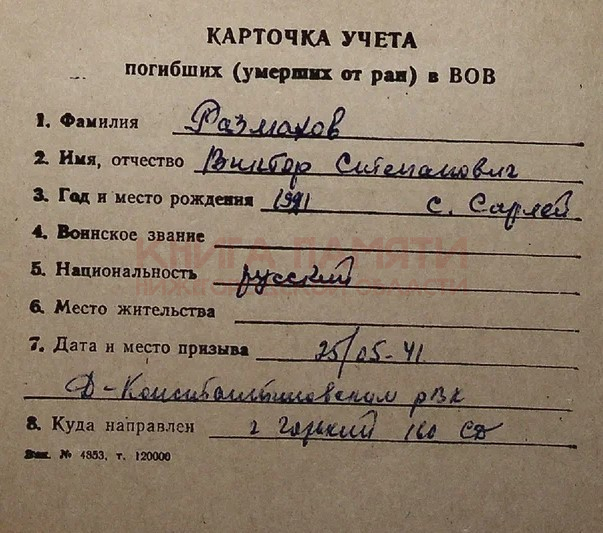 КАРТОЧКА УЧЕТА
погибших (умерших от ран) в ВОВ
1. Фамилия Размахов
2. Имя, отчество Виктор Степанович
3. Год и место рождения с. Сарлей
4. Воинское звание
КНИГА ПАМЯТИ
5. Национальность русский
НИЖЕГОРОДСКОЙ ОБЛАСТИ
6. Место жительства
7. Дата и место призыва 25/05-41
Д-Константиновским рвк
8. Куда направлен г Горький 160 СД
Зак. № 4853, т. 120000